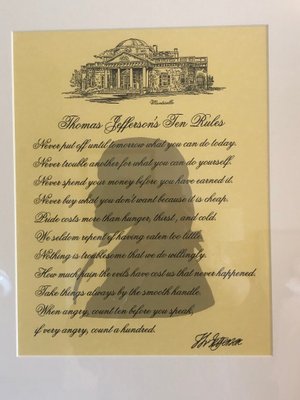 Monticello
Thomas Jefferson's Ten Rules
Never put off until tomorrow what you can do today.
Never trouble another for what you can do yourself.
Never spend your money before you have earned it.
Never buy what you don't want because it is cheap.
Pride costs more than hunger, thirst, and cold.
We seldom repent of having eaten too little.
Nothing is troublesome that we do willingly.
How much pain the evils have cost us that never happened.
Take things always by the smooth handle.
When angry, count ten before you speak,
if very angry, count a hundred.
Th Jefferson